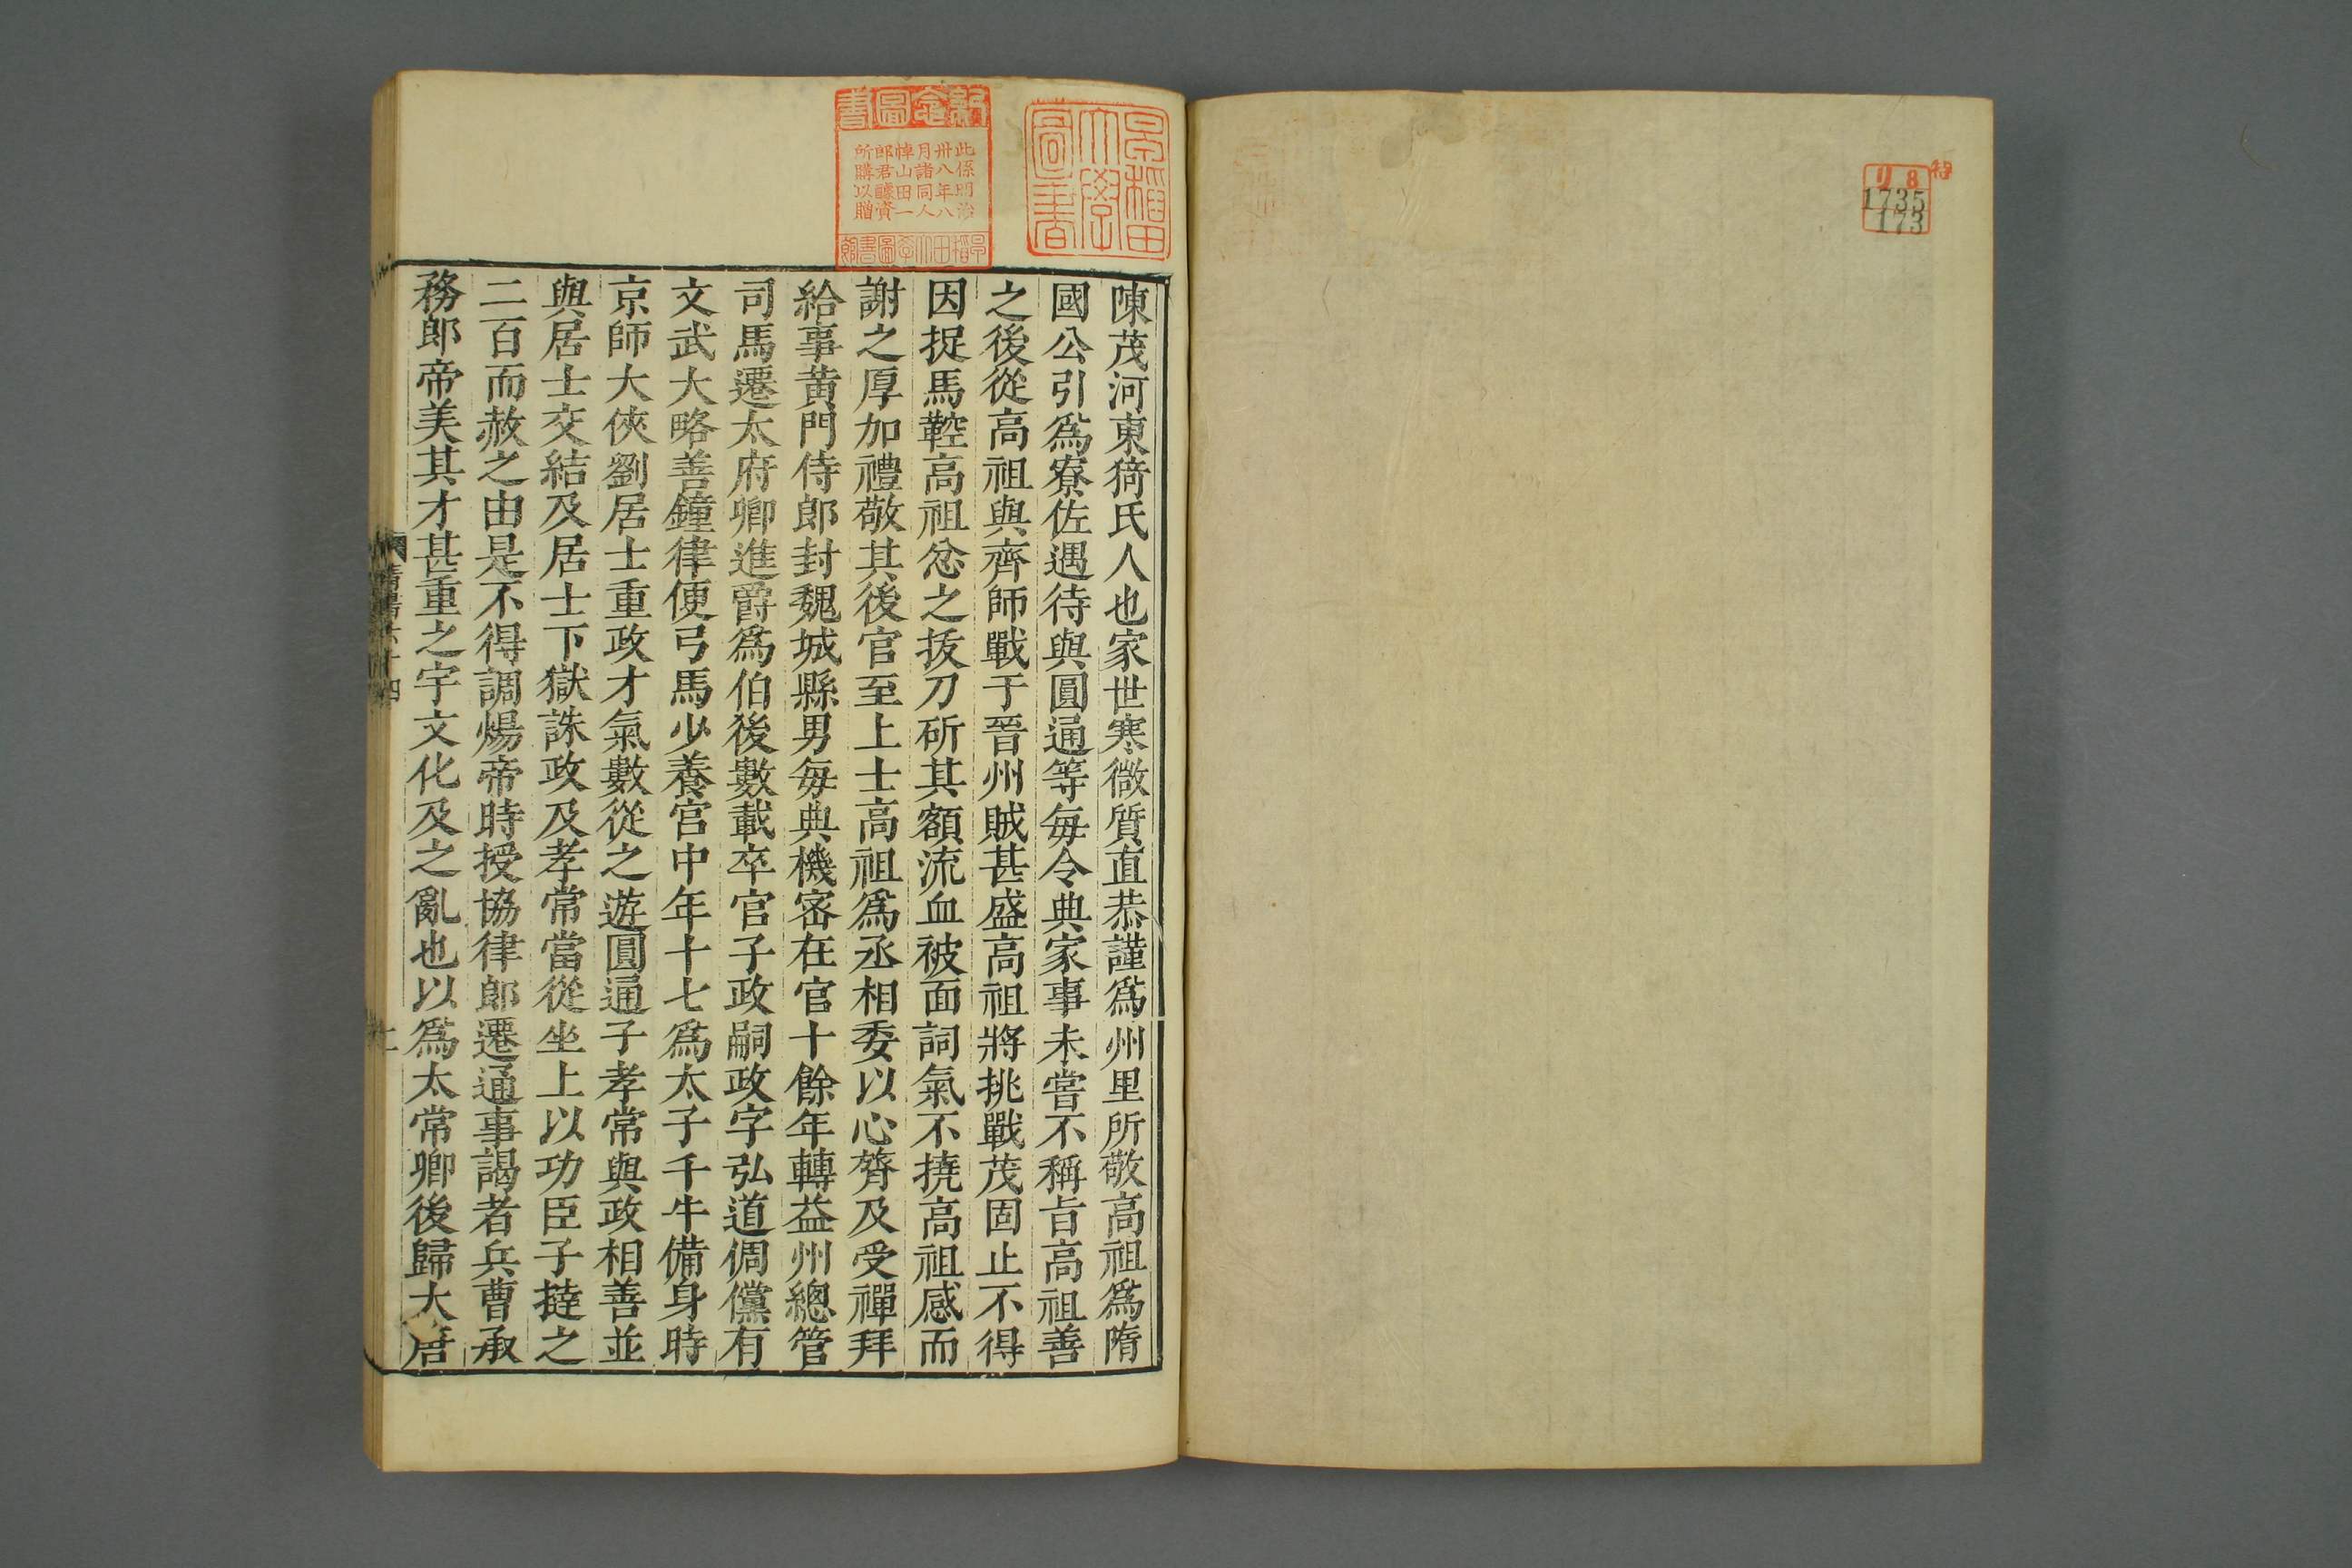 特
リ8
1735
173
早稲田大學圖書
紀念圖書
此係明治
卅八年八
月諸同人
悼山田一
郎君醵資
所購以贈
早稲田大學圖書館
陳茂河東猗氏人也家世寒微質直恭謹爲州里所敬高祖爲隋
國公引爲寮佐遇待與圓通等每令典家事未嘗不稱旨高祖善
之後從高祖與齊師戰于晉州賊甚盛高祖將挑戰茂固止不得
因捉馬鞚高祖忿之拔刀斫其額流血被面詞氣不撓高祖感而
謝之厚加禮敬其後官至上士高祖爲丞相委以心膂及受禪拜
給事黄門侍郎封魏城縣男每典機密在官十餘年轉益州總管
司馬遷太府卿進爵爲伯後數載卒官子政嗣政字弘道倜儻有
文武大略善鐘律便弓馬少養宫中年十七爲太子千牛備身時
京師大俠劉居士重政才氣數從之遊圓通子孝常與政相善並
與居士交結及居士下獄誅政及孝常當從坐上以功臣子撻之
二百而赦之由是不得調煬帝時授協律郎遷通事謁者兵曹承
務郎帝美其才甚重之宇文化及之亂也以爲太常卿後歸大唐